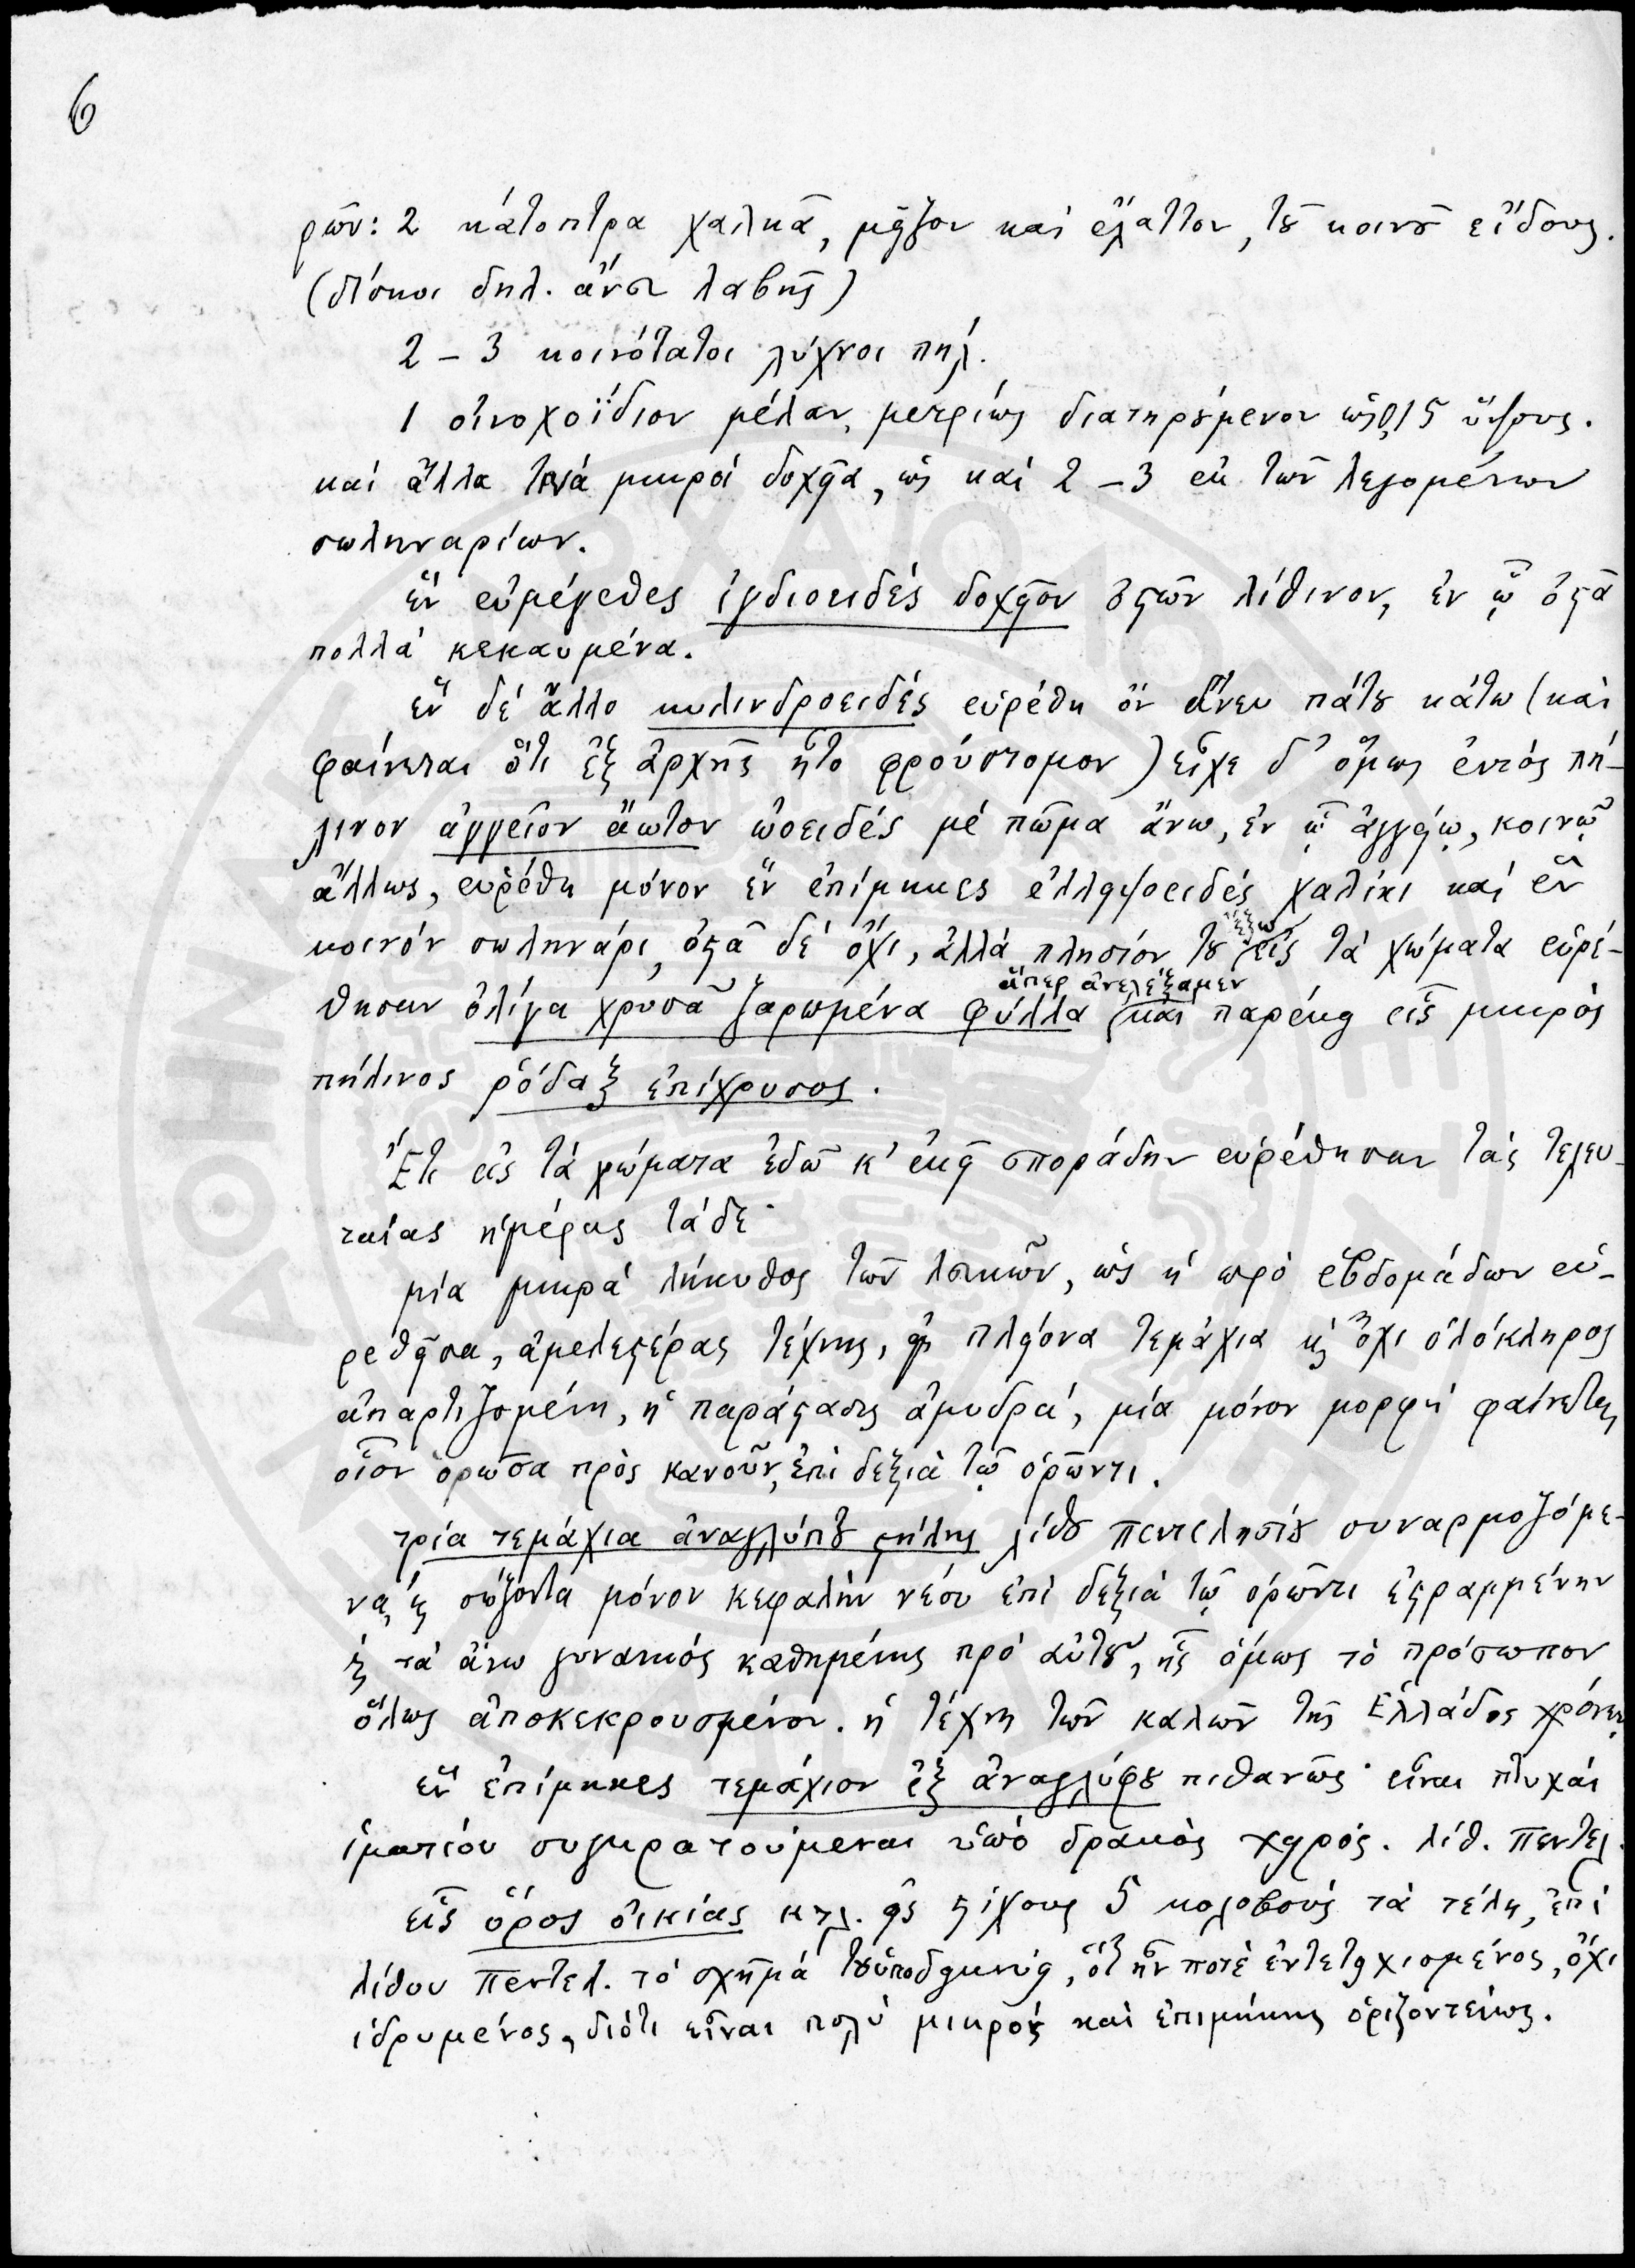 6
ρῶν: 2 κάτοπτρα χαλκᾶ, μεῖζον καὶ ἔλαττον, τοῦ κοινοῦ εἴδους.
(δίσκοι δηλ. ἄνευ λαβῆς)
2 – 3 κοινότατοι λύχνοι πηλ.
1 οἰνοχοΐδιον μέλαν, μετρίως διατηρούμενον ὡς 0,15 ὕψους.
καὶ ἄλλα τινὰ μικρὰ δοχεῖα, ὡς καὶ 2 – 3 ἐκ τῶν λεγομένων
σωληναρίων.
ἓν εὐμέγεθες ἰγδιοειδές δοχεῖον ὀστῶν λίθινον, ἐν ᾧ ὀστᾶ
πολλὰ κεκαυμένα.
ἓν δὲ ἄλλο κυλινδροειδές εὑρέθη ὂν ἄνευ πάτου κάτω (καὶ
φαίνεται ὅτι ἐξ ἀρχῆς ἦτο φρούστομον) εἶχε δ' ὅμως ἐντός πή-
λινον ἀγγεῖον ἄωτον ὠοειδές μέ πῶμα ἄνω, ἐν ᾧ ἀγγείῳ, κοινῷ
ἄλλως, εὑρέθη μόνον ἓν ἐπίμηκες ἐλλειψοειδές χαλίκι καὶ ἓν
κοινόν σωληνάρι, ὀστᾶ δὲ ὄχι, ἀλλὰ πλησίον του ἔξω εἰς τὰ χώματα εὑρέ-
θησαν ὀλίγα χρυσᾶ ζαρωμένα φύλλα ἅπερ ἀνελέξαμεν καὶ παρέκει εἷς μικρὸς
πήλινος ῥόδαξ ἐπίχρυσος.
Ἔτι εἰς τὰ χώματα ἐδῶ κ' ἐκεῖ σποράδην εὑρέθησαν τὰς τελευ-
ταίας ἡμέρας τάδε·
μία μικρὰ λήκυθος τῶν λευκῶν, ὡς ἡ πρὸ ἑβδομάδων εὑ-
ρεθεῖσα, ἀμελεστέρας τέχνης, εἰς πλείονα τεμάχια κ' ὄχι ὁλόκληρος
ἀπαρτιζομένη, ἡ παράστασις ἀμυδρά, μία μόνον μορφὴ φαίνεται,
οἷον ὁρῶσα πρὸς κανοῦν, ἐπὶ δεξιὰ τῷ ὁρῶντι.
τρία τεμάχια ἀναγλύπτου στήλης λίθου πεντελησίου συναρμοζόμε-
να, καὶ σῴζοντα μόνον κεφαλὴν νέου ἐπὶ δεξιὰ τῷ ὁρῶντι ἐστραμμένην
καὶ τὰ ἄνω γυναικός καθημένης πρὸ αὐτοῦ, ἧς ὅμως τὸ πρόσωπον
ὅλως ἀποκεκρουσμένον. ἡ τέχνη τῶν καλῶν τῆς Ἑλλάδος χρόνων.
ἓν ἐπίμηκες τεμάχιον ἐξ ἀναγλύφου πιθανῶς· εἶναι πτυχαὶ
ἱματίου συγκρατούμεναι ὑπὸ δρακὸς χειρός. λίθ. πεντελ.
εἷς ὅρος οἰκίας κτλ. εἰς στίχους 5 κολοβούς τὰ τέλη, ἐπὶ
λίθου πεντελ. τὸ σχῆμά του ὑποδεικνύει, ὅτι ἦν ποτὲ ἐντετειχισμένος, ὄχι
ἱδρυμένος, διότι εἶναι πολὺ μικρός καὶ ἐπιμήκης ὁριζοντείως.